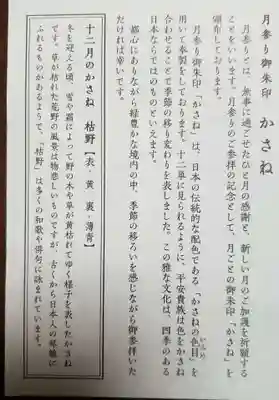 月参り御朱印 かさね
月参りとは、無事に過ごせたひと月の感謝と、新しい月のご加護を祈願する
ことをいいます。月参りのご参拝の記念として、月ごとの御朱印「かさね」を
頒布しております。
月参り御朱印「かさね」は、日本の伝統的な配色である「かさねの色目」を
用いて奉製をしております。十二単に見られるように、平安貴族は色をかさね
合わせることで季節の移り変わりを表しました。この雅な文化は、四季のある
日本ならではのものといえます。
都心にありながら緑豊かな境内の中、季節の移ろいを感じながら御参拝いた
だければ幸いです。
十二月のかさね 枯野【表・黄 裏・薄青】
冬を迎える頃、雪や霜によって野の木や草が黄枯れてゆく様子を表したかさね
です。草が枯れた荒野の風景は物悲しいものですが、古くから日本人の琴線に
ふれるものがあるようで、「枯野」は多くの和歌や俳句に詠まれています。